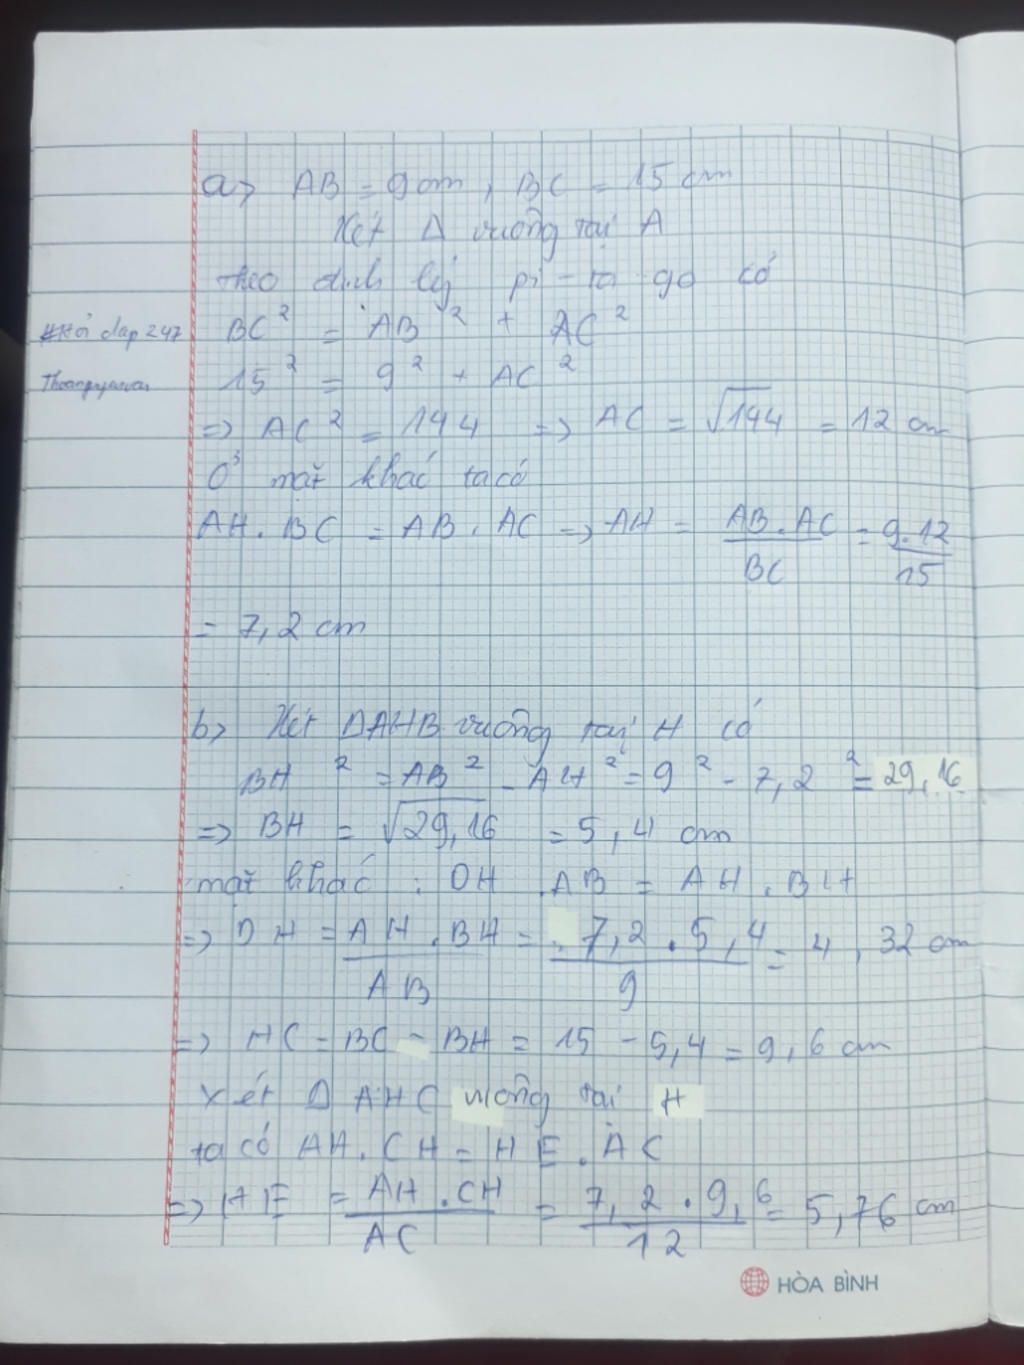 a> AB = 9cm, BC = 15 cm
Xét Δ vuông tại A
theo định lý pi-ta go có
#Hỏi đap 247
BC² = AB² + AC²
15² = 9² + AC²
=> AC² = 144 => AC = √144 = 12 cm
mặt khác ta có
AH . BC = AB . AC => AH = AB.AC / BC = 9.12 / 15
= 7,2 cm
b> Xét ΔAHB vuông tại H có
BH² = AB² - AH² = 9² - 7,2² = 29,16
=> BH = √29,16 = 5,4 cm
mặt khác : DH . AB = AH . BH
=> DH = AH.BH / AB = 7,2 . 5,4 / 9 = 4,32 cm
=> HC = BC - BH = 15 - 5,4 = 9,6 cm
Xét Δ AHC vuông tại H
ta có AH . CH = HE . AC
=> HE = AH.CH / AC = 7,2 . 9,6 / 12 = 5,76 cm
HÒA BÌNH